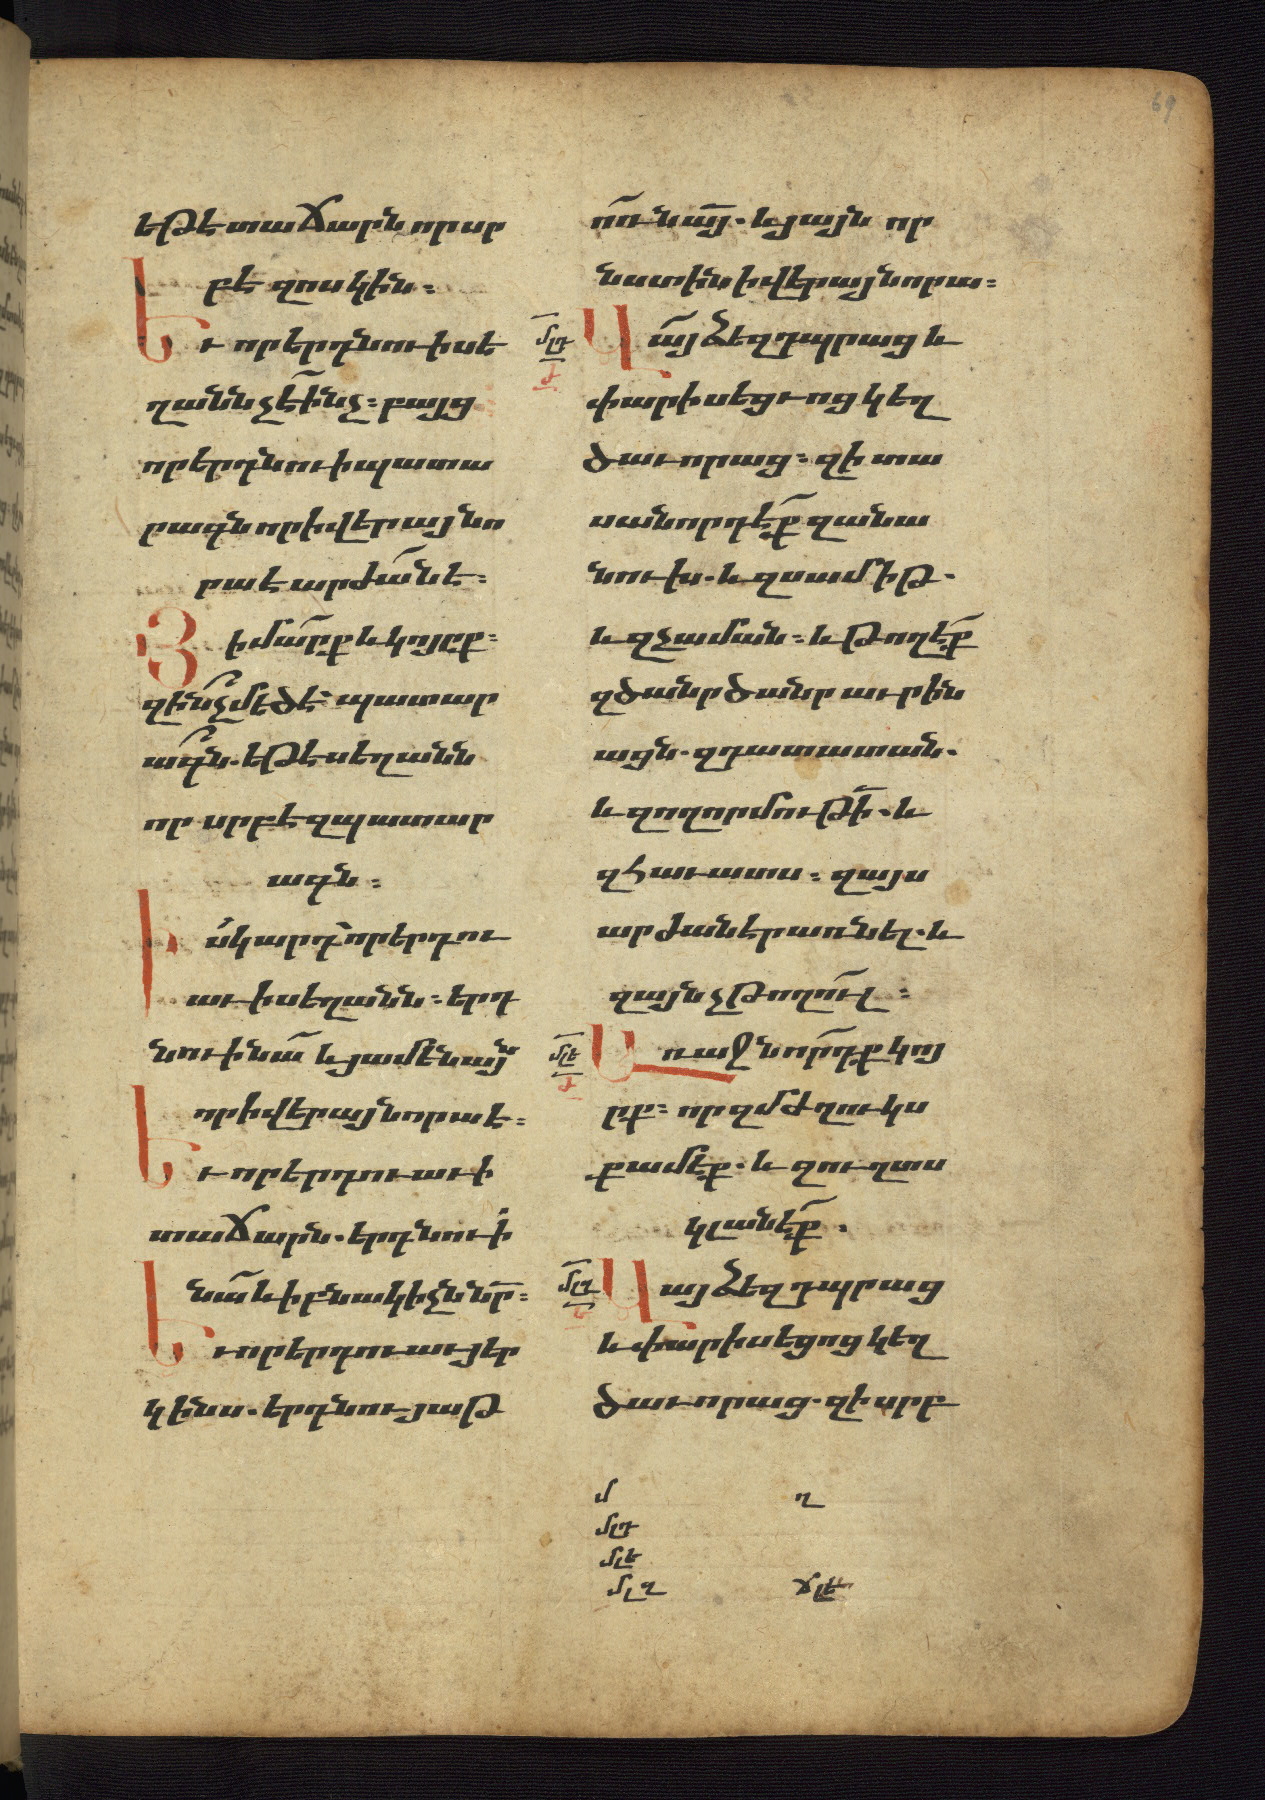 եԹէ տաՃարն որ սր
բէ զոսկին։
Եւ որ երդնու ի սե
ղանն չէ ինչ։ բայց
որ երդնու ի պատա
րագն որ ի վերայ նո
րա է արժանէ։
Յիմարք և կոյրք։
զինչ մեծ է՝ պատար
ագն. եԹէ սեղանն
որ սրբէ զպատար
ագն։
Իսկ արդ՝ որ երդու
աւ ի սեղանն։ երդ
նու ի նա և յամենայն
որ ի վերայ նորա է։
Եւ որ երդուաւ ի
տաՃարն. երդնու ի
նա և ի բնակիչն նր։
Եւ որ երդուաւ յեր
կինս. երդնու յաԹ
ոռ նայ. և յայն որ
նստին ի վերայ նորա։
մլդ Վայ ձեզ դպրաց և
փարիսեցւոց կեղ
ծաւորաց։ զի տա
սանորդէք զանա
նուխ. և զսամիԹ.
և զչաման։ և Թողէք
զծանր ծանր աւրին
ացն. զդատաստան.
և զողորմուԹի. և
զհաւատս։ զայս
արժան էր առնել. և
զայն չԹողուլ։
մլե Առաջնորդք կոյ
րք։ որ զմժղուկս
քամէք. և զուղտս
կլանէք.
մլզ Վայ ձեզ դպրաց
և փարիսեցոց կեղ
ծաւորաց. զի սրբ
մ ղ
մլդ
մլե
մլզ Ճլէ
69